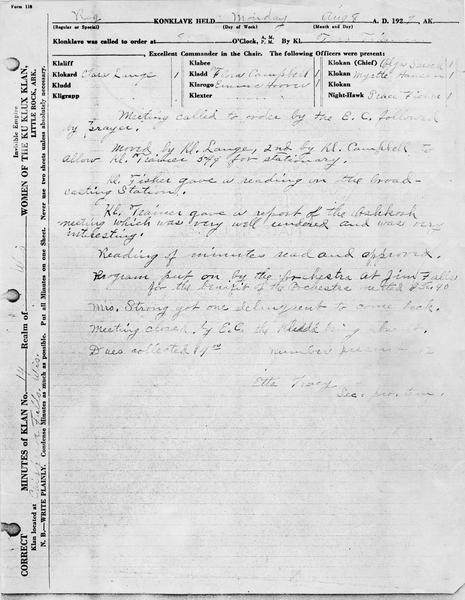 Form 118
Reg KONKLAVE HELD Monday Aug 8 A. D. 1927, AK.
(Regular or Special) (Day of Week) (Month and Day)
Klonklave was called to order at O'CLOCK, A. M. P. M. By Kl.
Excellent Commander in the Chair. The following Officers were present:
Klaliff Klabee Klokan (Chief) Olga
Klokard Clara Lange 1 Kladd Flora Campbell 1 Klokan Myrtle Hansen 1
Kludd Klarogo Emma Hoover 1 Klokan
Kligrapp Klexter Night-Hawk Grace Fisher 1
Meeting called to order by the E. C. followed
by Prayer.
Moved by Kl. Lange, 2nd by Kl. Campbell to
allow Kl. Trainer for stationary.
Kl. Fisher gave a reading on the broad-
casting Station.
Kl. Trainer gave a report of the Oshkosh
meeting which was very well and was very
interesting.
Reading of minutes read and approved.
Program put on by the Orchestra at Jim Falls
for the benefit of the Orchestra netted
Mrs. Strong got one delinquent to come back.
Meeting closed by E. C. the Kludd being absent.
Dues collected number present 12
Etta
Sec. pro. tem.
CORRECT MINUTES OF KLAN No. 14 Realm of Wis WOMEN OF THE KU KLUX KLAN,
Invisible Empire
LITTLE ROCK, ARK.
Klan located at Chippewa Falls, Wis.
N. B.—WRITE PLAINLY. Condense Minutes as much as possible. Put all Minutes on one Sheet. Never use two sheets unless absolutely necessary.